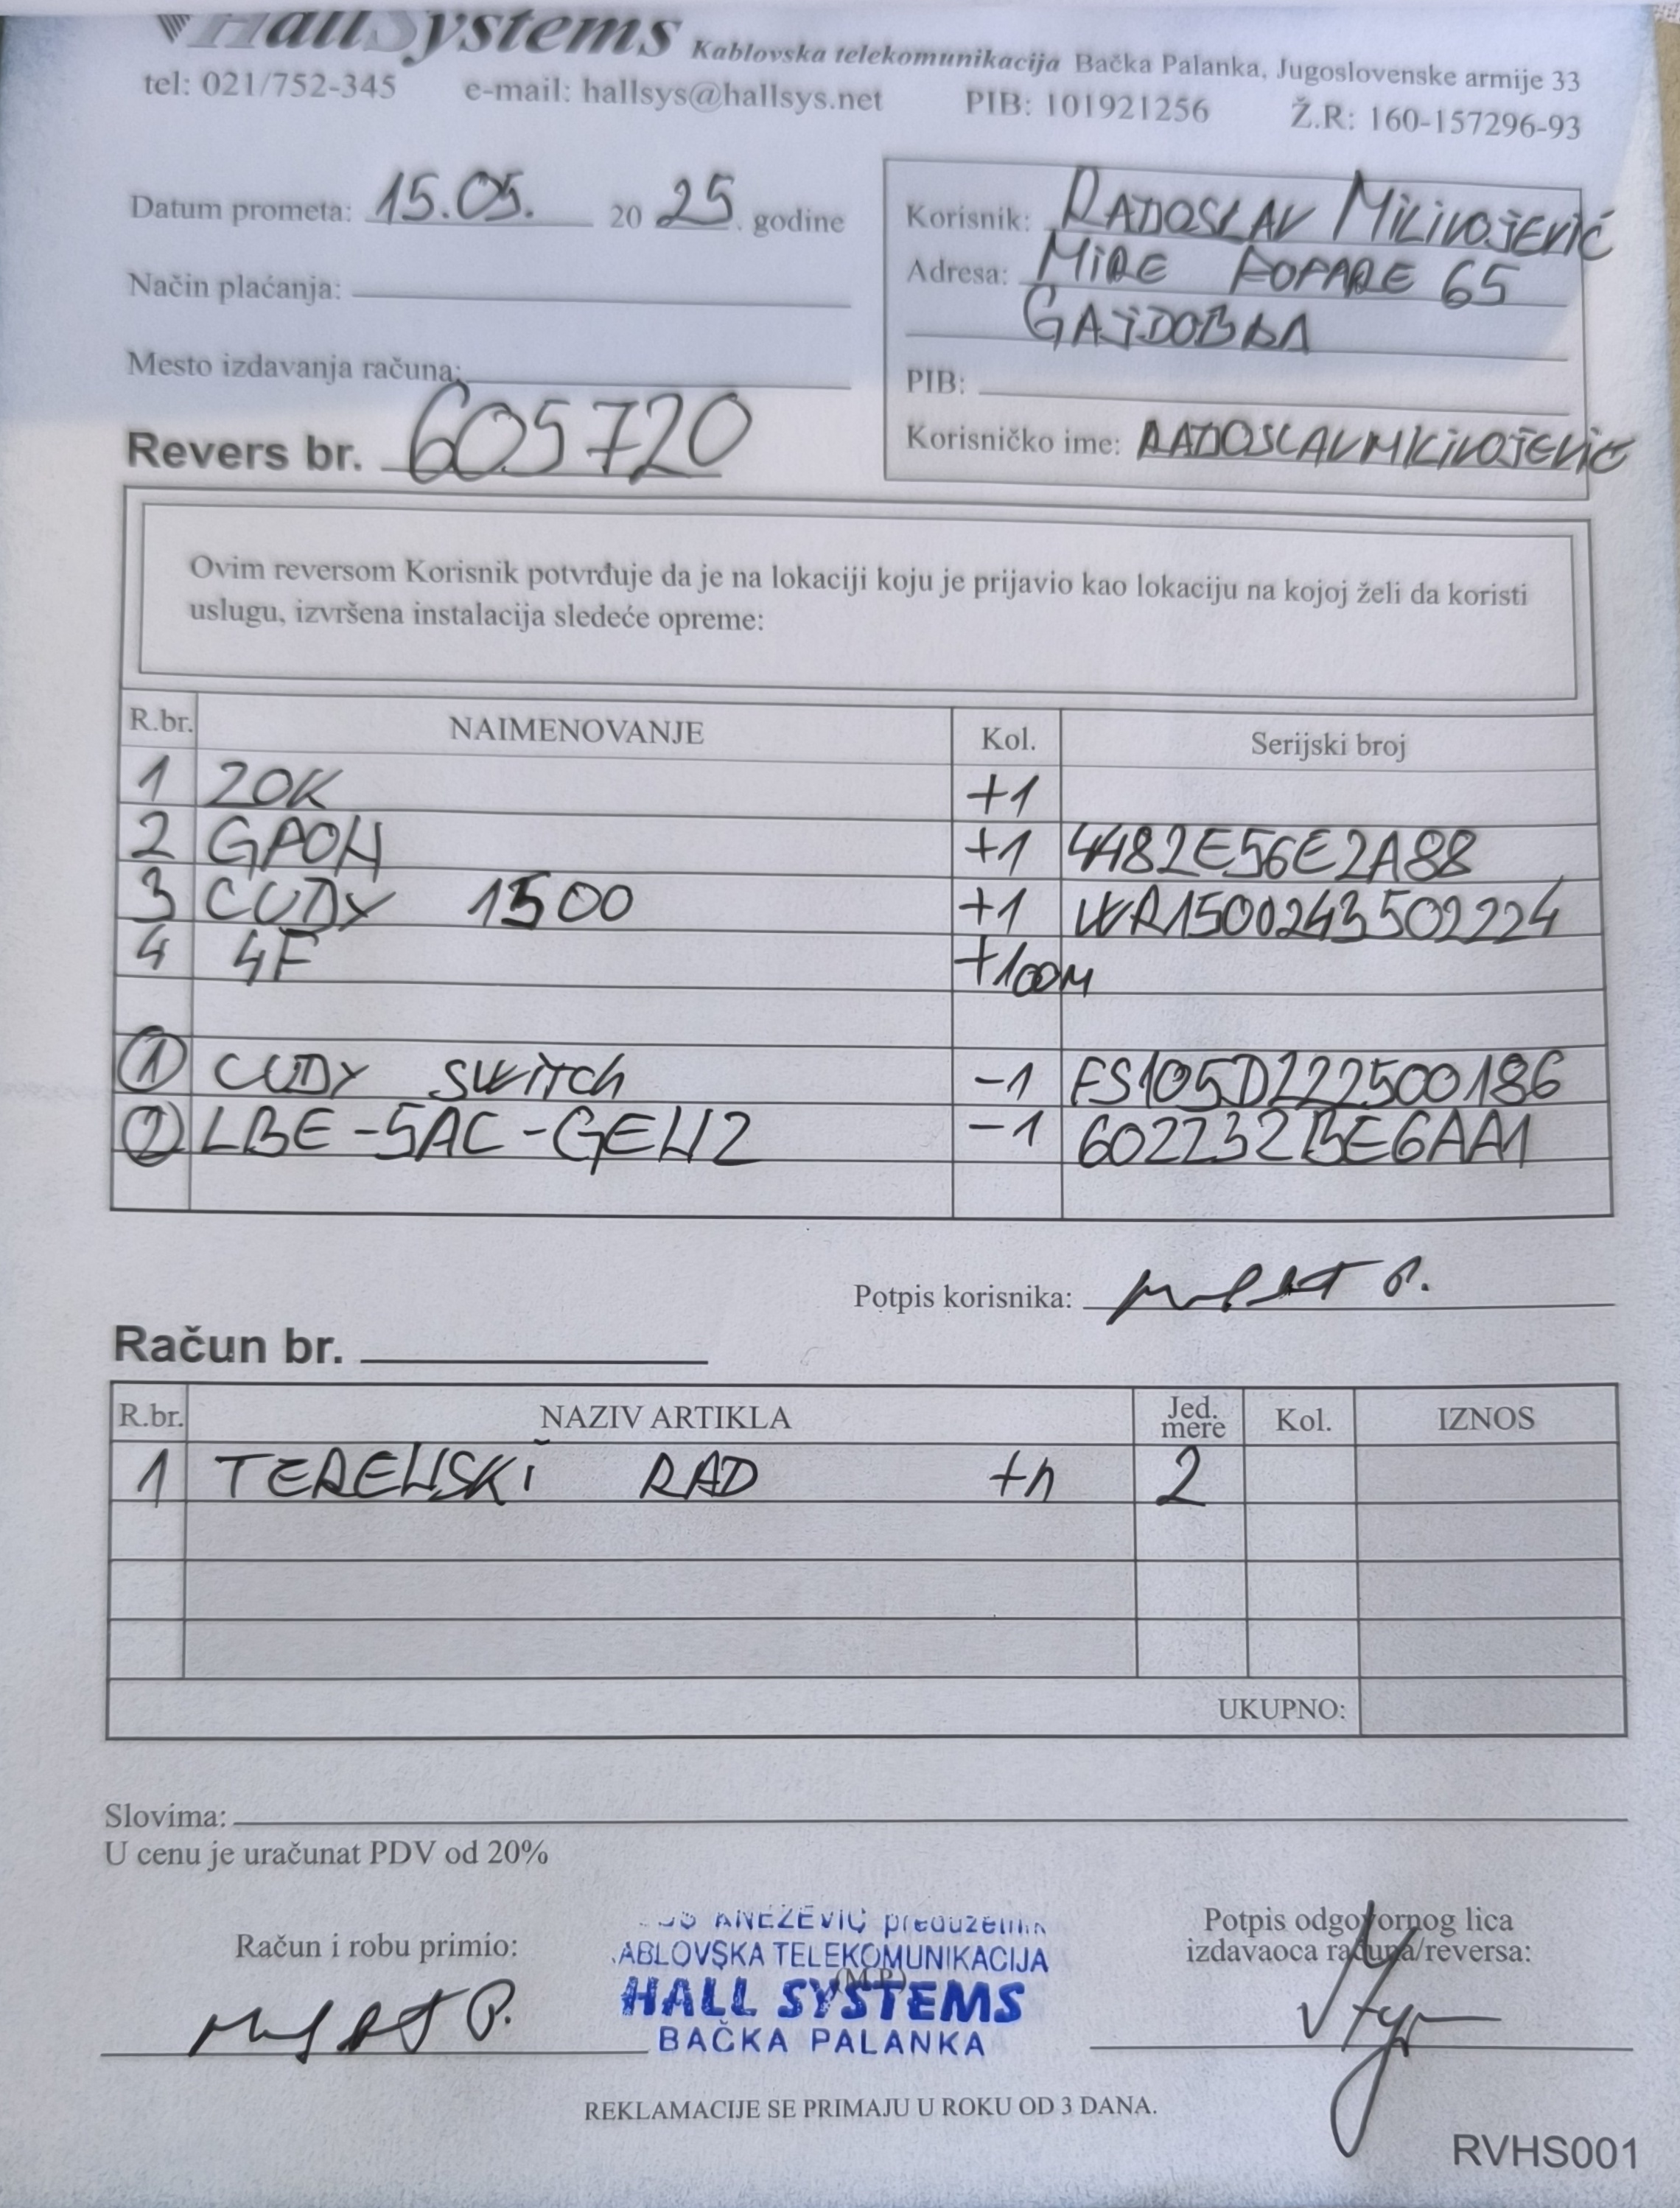 HallSystems Kablovska telekomunikacija Bačka Palanka, Jugoslovenske armije 33
tel: 021/752-345 e-mail: hallsys@hallsys.net PIB: 101921256 Ž.R: 160-157296-93
Datum prometa: 15.05. 20 25. godine
Način plaćanja:
Mesto izdavanja računa:
Revers br. 605720
Korisnik: RADOSLAV MILIVOJEVIĆ
Adresa: MIRE POPARE 65
GAJDOBRA
PIB:
Korisničko ime: RADOSLAVMILIVOJEVIC
Ovim reversom Korisnik potvrđuje da je na lokaciji koju je prijavio kao lokaciju na kojoj želi da koristi
uslugu, izvršena instalacija sledeće opreme:
R.br. NAIMENOVANJE Kol. Serijski broj
1 ZOK +1
2 GPON +1 4482E56E2A88
3 CUDY 1500 +1 WR1500243502224
4 4F +100M
1 CUDY SWITCH -1 FS105D222500186
2 LBE-5AC-GEN2 -1 602232BE6AA1
Potpis korisnika:
Račun br.
R.br. NAZIV ARTIKLA Jed. mere Kol. IZNOS
1 TERENSKI RAD +h 2
UKUPNO:
Slovima:
U cenu je uračunat PDV od 20%
Račun i robu primio:
KNEŽEVIĆ preduzetnik
ABLOVSKA TELEKOMUNIKACIJA
(M.P.)
HALL SYSTEMS
BAČKA PALANKA
Potpis odgovornog lica
izdavaoca računa/reversa:
REKLAMACIJE SE PRIMAJU U ROKU OD 3 DANA.
RVHS001